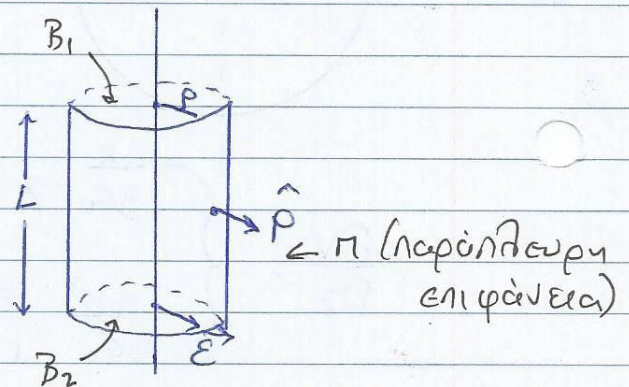 B₁
ρ
L
ρ̂
← Π (παράπλευρη
επιφάνεια)
B₂
ε